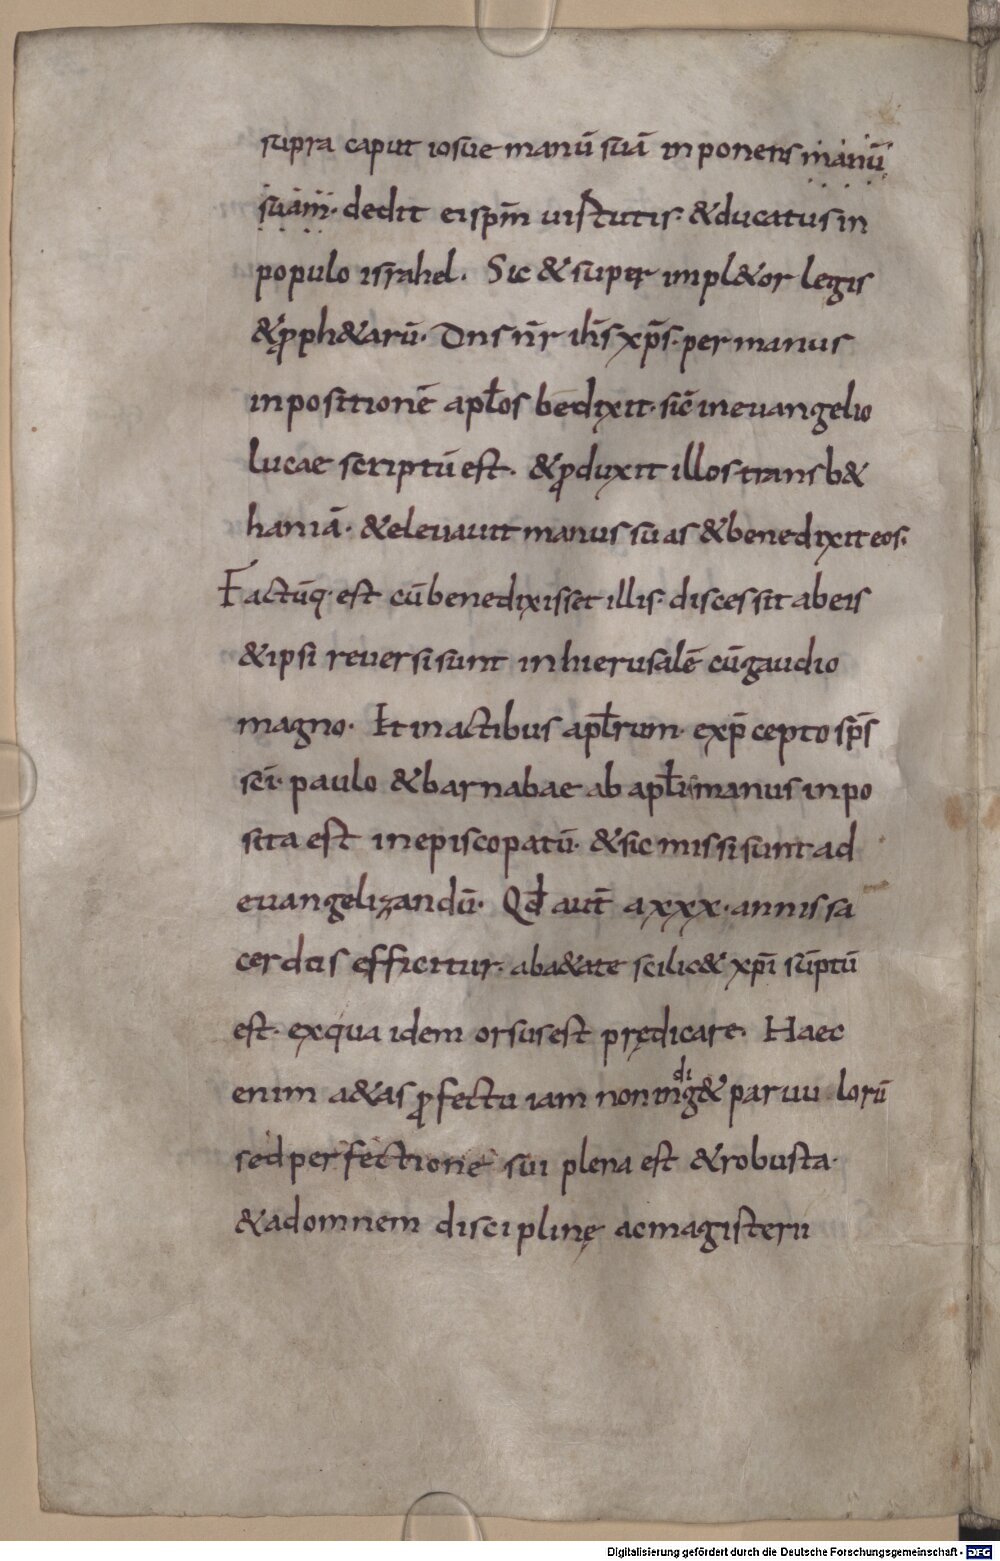 supra caput iosue manū suā inponens manū
suam· dedit ei spm̄ uirtutis· &ducatus in
populo israhel· Sic & super impl&or legis
&ꝓph&arū· Dns nr̄ ihs̄ xps̄· per manus
inpositionē apłos bedixit· sic̄ in euangelio
lucae scriptū est· &ꝓduxit illos trans b&
haniā· &eleuauit manus suas &benedixit eos·
Factūq· est cū benedixisset illis· discessit ab eis
&ipsi reuersi sunt in hierusalē cū gaudio
magno· Et in actibus apłrum· exp̄ cepto sps̄
sci̅· paulo &barnabae ab apłis manus inpo
sita est in episcopatū· &sic missi sunt ad
euangelizandū· Qd̄ aut̄ a xxx· annis sa
cerdos efficitur· aba&ate scilic& xpi̅ sūptū
est· ex qua idem orsus est prędicare· Haec
enim a&as ꝓfectu iam non indig& paruu lorū
sed perfectione sui plena est &robusta·
&ad omnem disciplinę ac magisterii
Digitalisierung gefördert durch die Deutsche Forschungsgemeinschaft - DFG